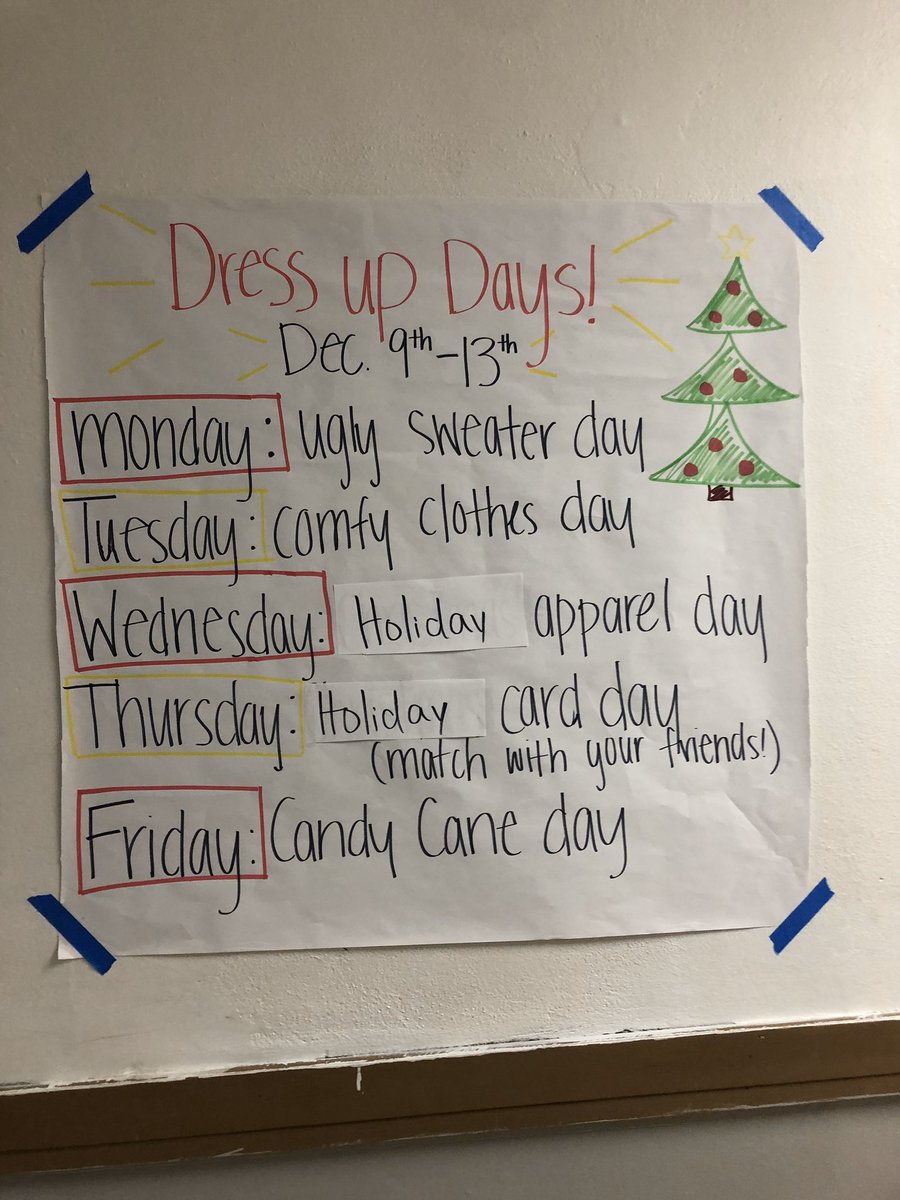 Dress up Days!
Dec. 9th-13th
monday: ugly sweater day
Tuesday: comfy clothes day
Wednesday: Holiday apparel day
Thursday: Holiday card day
(match with your friends!)
Friday: Candy Cane day